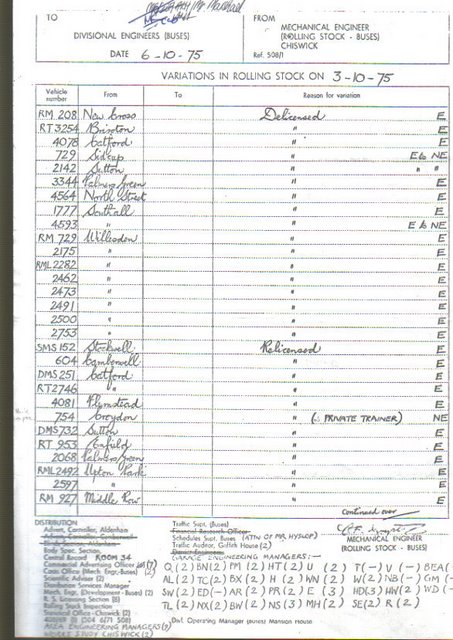 TO
DIVISIONAL ENGINEERS (BUSES)
DATE 6-10-75
FROM
MECHANICAL ENGINEER
(ROLLING STOCK - BUSES)
CHISWICK
Ref. 508/1
VARIATIONS IN ROLLING STOCK ON 3-10-75
Vehicle number From To Reason for variation
RM 208 New Cross Delicensed E
RT 3254 Brixton " E
4078 Catford " E
729 Sidcup " E to NE
2142 Sutton " " "
3344 Palmers Green " E
4564 North Street " E
1777 Southall " E
4593 " " E to NE
RM 729 Willesden " E
2175 " " E
RML 2282 " " E
2462 " " E
2473 " " E
2491 " " E
2500 " " E
2753 " " E
SMS 152 Stockwell Relicensed E
604 Camberwell " E
DMS 251 Catford " E
RT 2746 " " E
4081 Plumstead " E
754 Croydon " (PRIVATE TRAINER) NE
DMS 732 Sutton " E
RT 953 Enfield " E
2068 Palmers Green " E
RML 2492 Upton Park " E
2597 " " E
RM 927 Middle Row " E
continued over
MECHANICAL ENGINEER
(ROLLING STOCK - BUSES)
DISTRIBUTION
Advert. Controller, Aldenham
Body Spec. Section
Central Record ROOM 34
Commercial Advertising Officer
Costs Office (Mech. Eng.-Buses) (2)
Scientific Adviser (2)
Distribution Services Manager
Mech. Engr. (Development - Buses) (2)
R. S. Licensing Section (8)
Rolling Stock Inspection
Statistical Office - Chiswick (2)
AREA ENGINEERING MANAGERS (2)
WORKS STUDY CHISWICK (2)
Traffic Supt. (Buses)
Financial Research Officer
Schedules Supt. (Buses) (ATN OF MR. HYSLOP)
Traffic Auditor, Griffith House (2)
GARAGE ENGINEERING MANAGERS:-
Q (2) BN (2) PM (2) HT (2) U (2) T (-) V (-) BEA (
AL (2) TC (2) BX (2) H (2) WN (2) W (2) NB (-) GM (-
SW (2) ED (-) AR (2) PR (2) E (3) HD (3) HW (2) WD (-
TL (2) NX (2) BW (2) NS (3) MH (2) SE (2) R (2)
Dist. Operating Manager (Buses) Mansion House